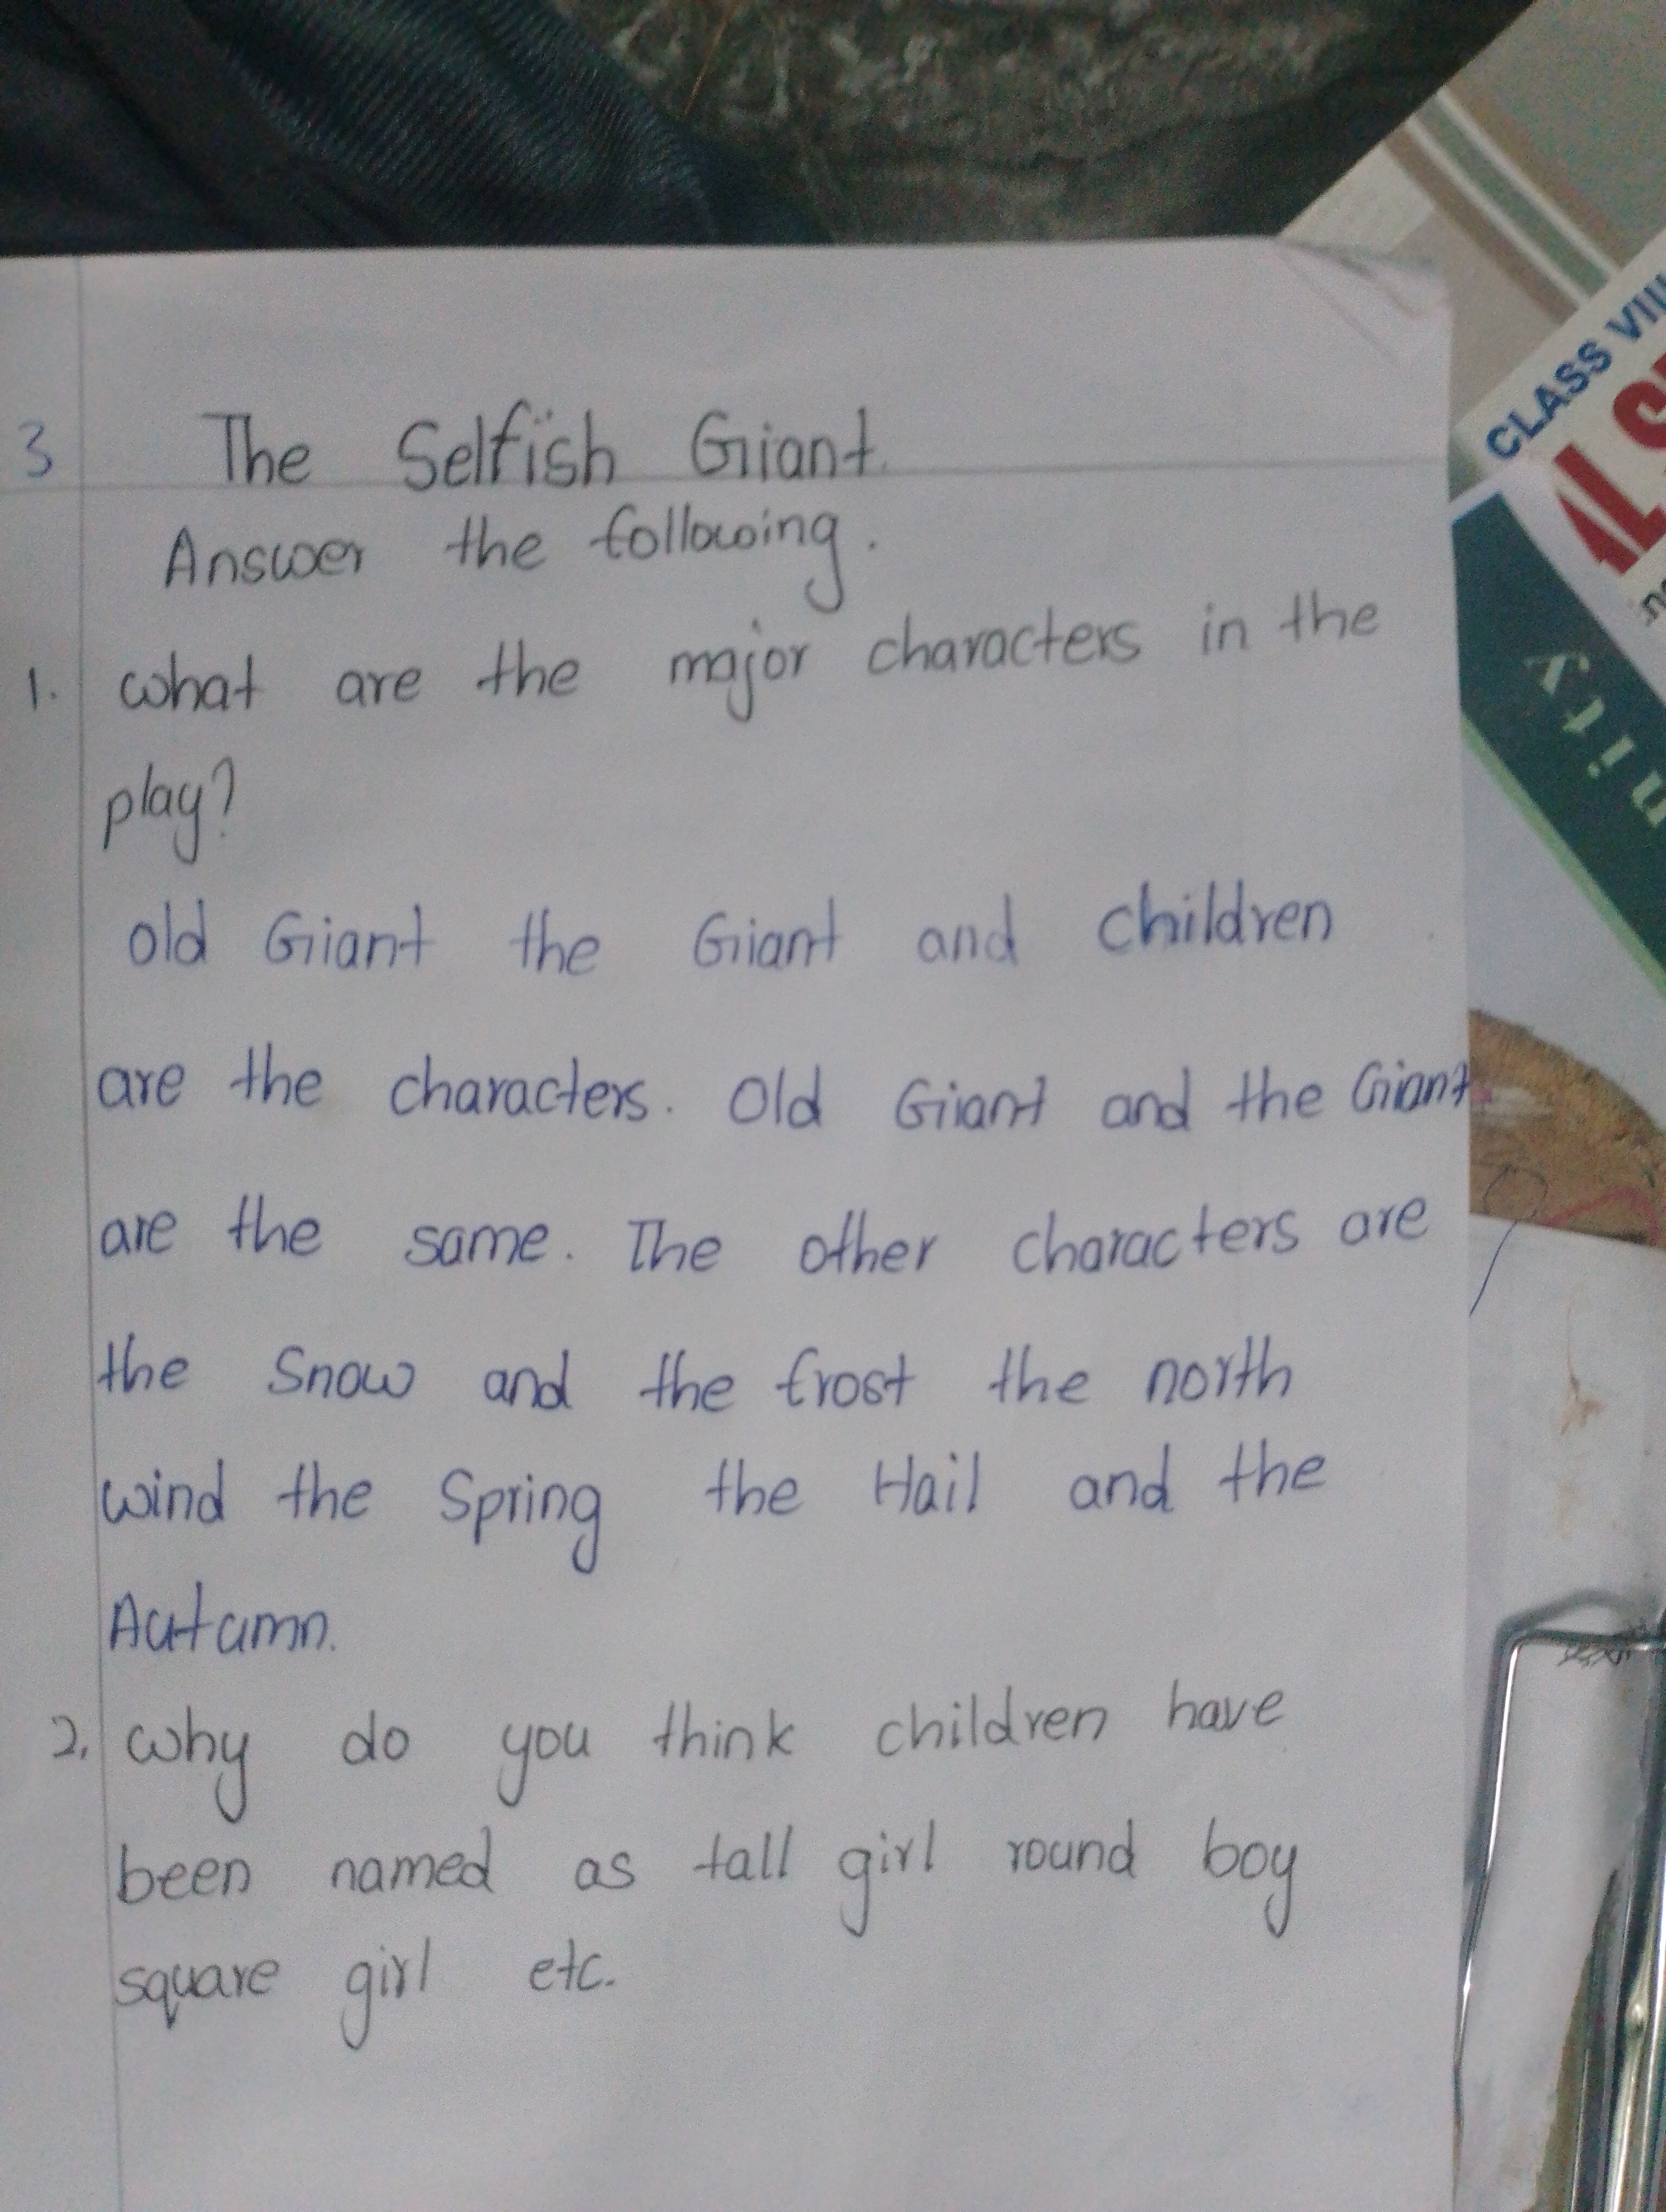 3 The Selfish Giant.
Answer the following.
1. what are the major characters in the
play?
old Giant the Giant and children
are the characters. Old Giant and the Giant
are the same. The other characters are
the Snow and the frost the north
wind the Spring the Hail and the
Autumn.
2. why do you think children have
been named as tall girl round boy
square girl etc.
CLASS VIII
nity